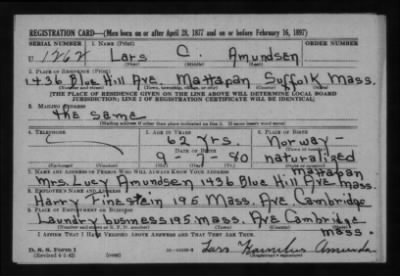 REGISTRATION CARD—(Men born on or after April 28, 1877 and on or before February 16, 1897)
SERIAL NUMBER 1. NAME (Print) ORDER NUMBER
U 1262 Lars C. Amundsen
(First) (Middle) (Last)
2. PLACE OF RESIDENCE (Print)
1436 Blue Hill Ave. Mattapan Suffolk Mass.
(Number and street) (Town, township, village, or city) (County) (State)
[THE PLACE OF RESIDENCE GIVEN ON THE LINE ABOVE WILL DETERMINE LOCAL BOARD
JURISDICTION; LINE 2 OF REGISTRATION CERTIFICATE WILL BE IDENTICAL]
3. MAILING ADDRESS
the same
[Mailing address if other than place indicated on line 2. If same insert word same]
4. TELEPHONE 5. AGE IN YEARS 6. PLACE OF BIRTH
62 yrs. Norway-
DATE OF BIRTH (Town or county)
9 - 80 naturalized
(Exchange) (Number) (Mo.) (Day) (Yr.) (State or country)
7. NAME AND ADDRESS OF PERSON WHO WILL ALWAYS KNOW YOUR ADDRESS Mattapan
Mrs. Lucy Amundsen 1436 Blue Hill Ave. Mass.
8. EMPLOYER'S NAME AND ADDRESS
Harry Finestein 195 Mass. Ave Cambridge
9. PLACE OF EMPLOYMENT OR BUSINESS
Laundry business 195 mass. Ave Cambridge
(Number and street or R. F. D. number) (Town) (County) (State)
mass.
I AFFIRM THAT I HAVE VERIFIED ABOVE ANSWERS AND THAT THEY ARE TRUE.
D. S. S. Form 1
(Revised 4-1-42) (over)
Lars